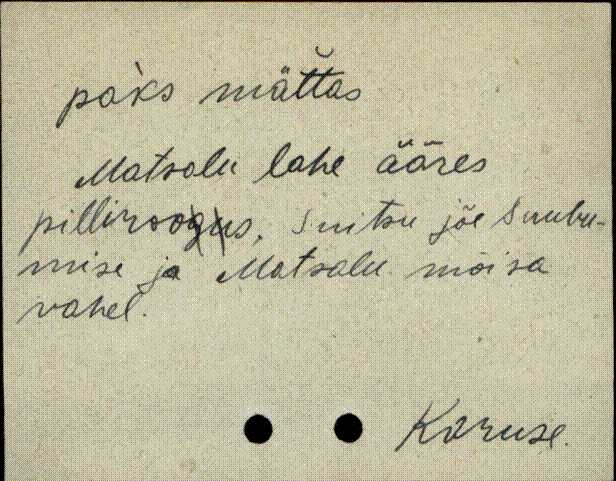 pak̀s mät̆tas
Matsalu lahe ääres
pilliroos, Suitsu jõe Suubu-
mise ja Matsalu mõisa
vahel.
Karuse.